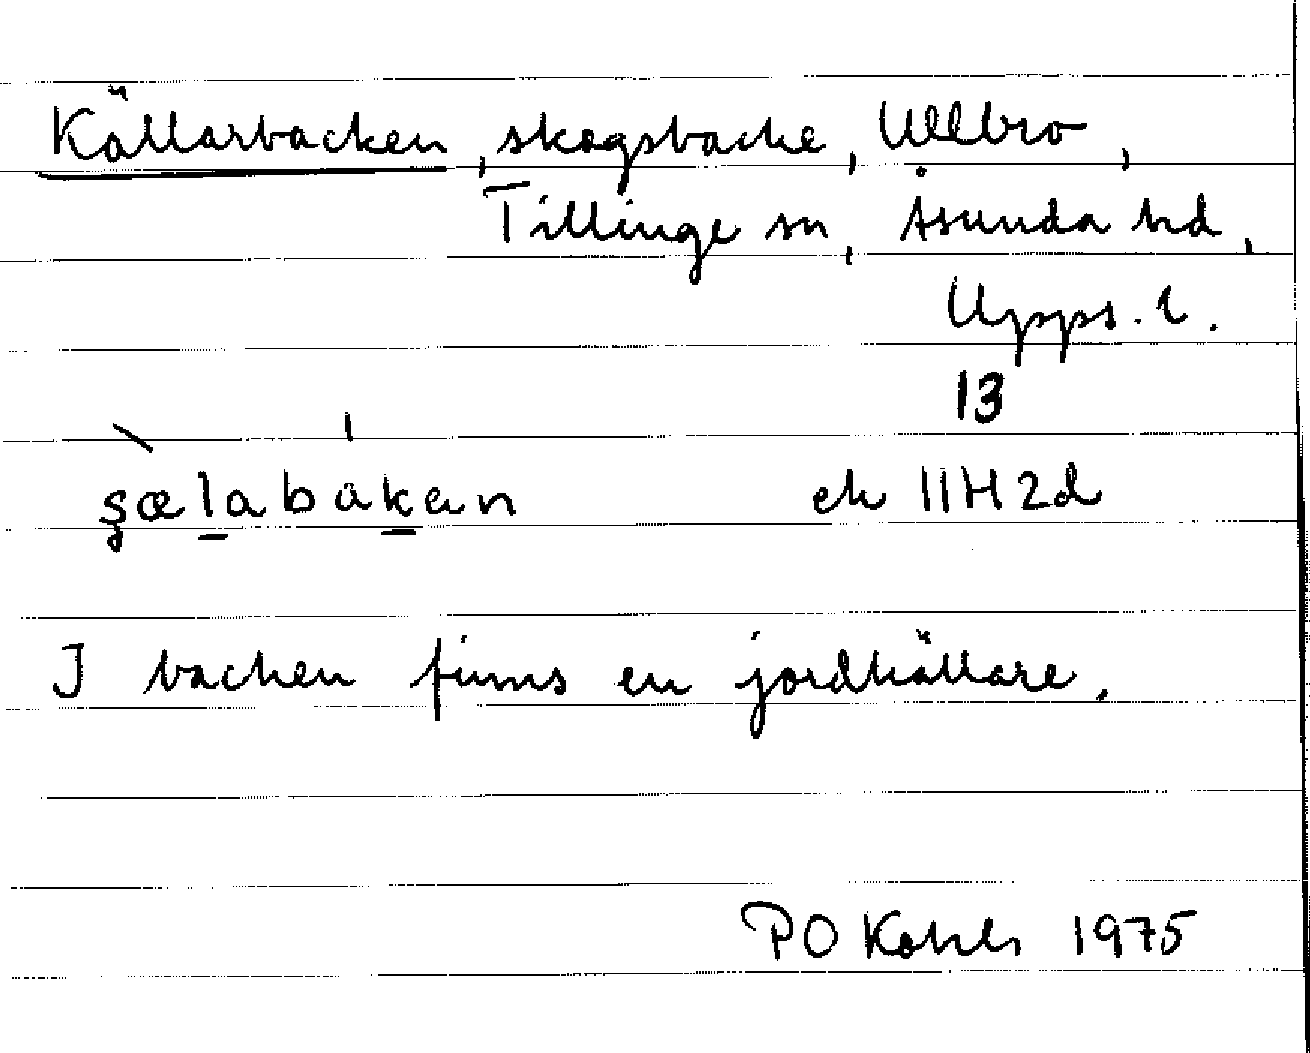 Källarbacken, skogsbacke, Ullbro,
Tillinge sn, Åsunda hd,
Upps. l.
13
șælabakan ek 11H2d
I backen finns en jordkällare.
PO Kohls 1975